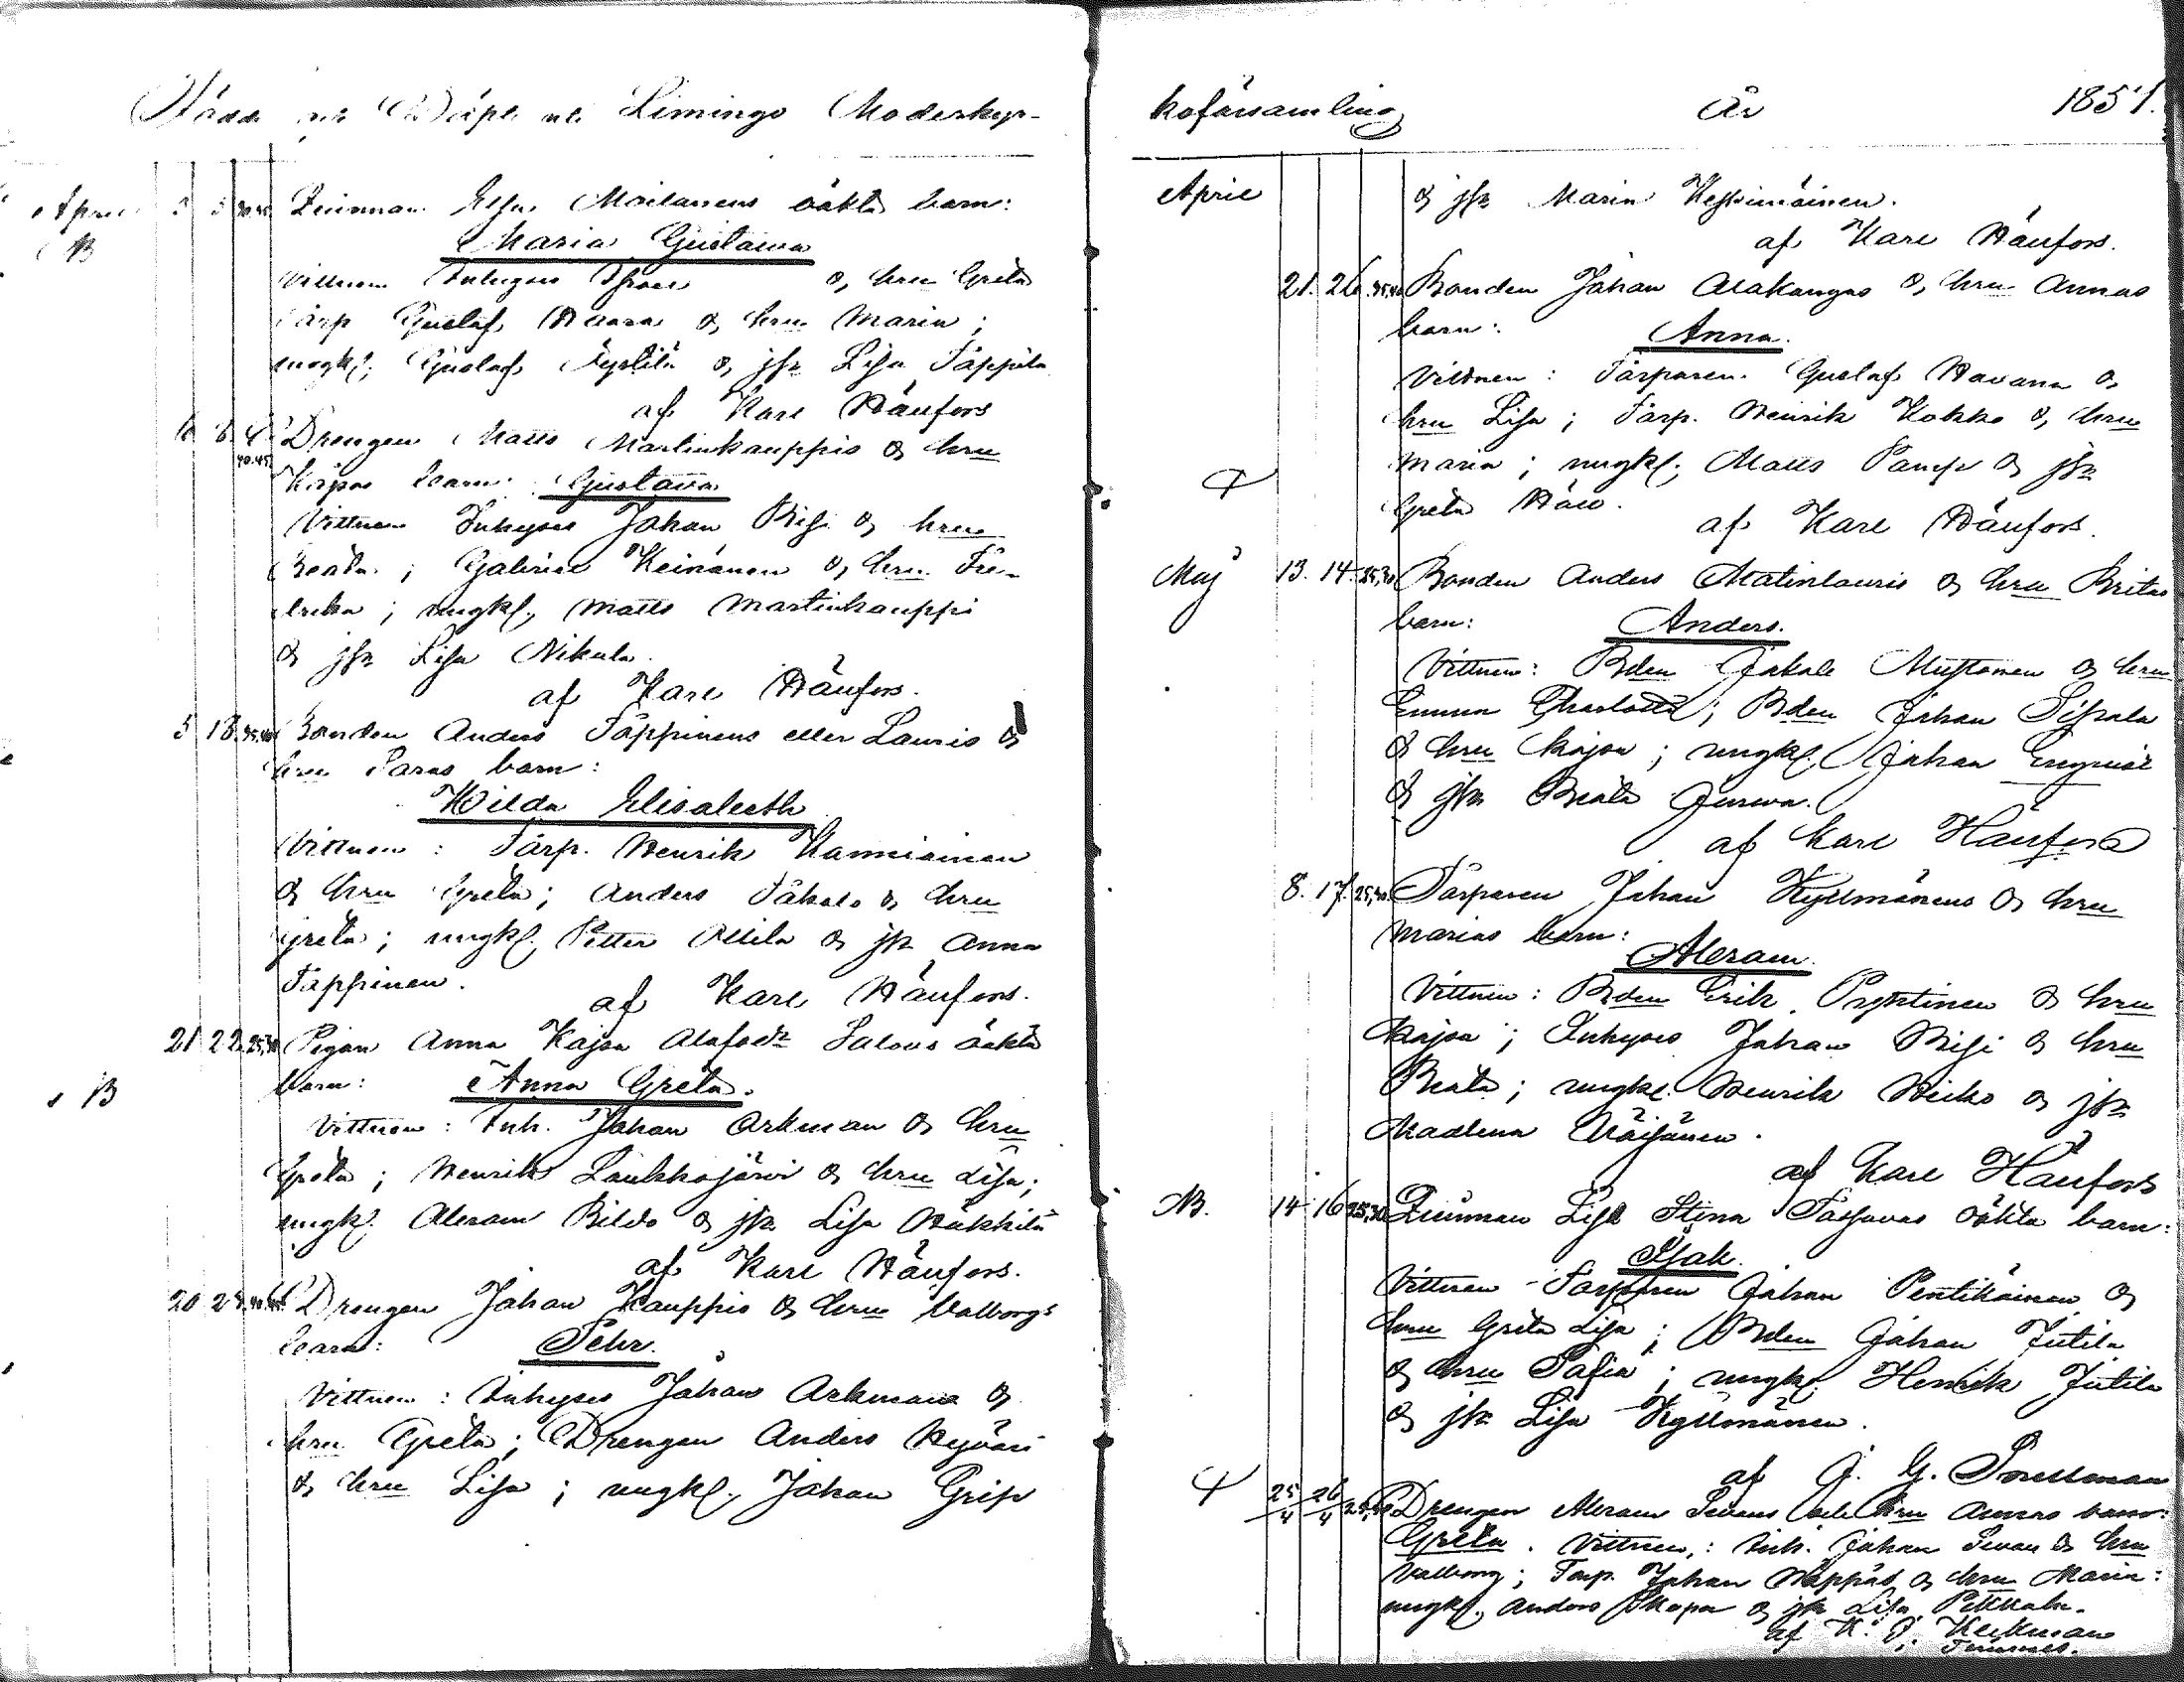 Födde och Döpte uti Limingo Moderkyr-
April 3 5 Qvinnan Elsa Moilanens oäkta barn:
B Maria Gustava
Vittnen Inhyses & hru Greta
Torp Gustaf & hru Maria;
ungkl. Gustaf & jfr Lisa Täppilä
af Karl Hänfors
6 8 Drengen Matts Martinkauppis & hru
40.45. Kajsas barn: Gustava
Vittnen Inhyses Johan Pisi & hru
Beata; Gabriel Keinänen & hru Fre-
drika; ungkl. Matts Martinkauppi
& jfr Lisa Nikula.
af Karl Hänfors.
5 18 Bonden Anders Täppinens eller Lauris &
hru Saras barn:
Hilda Elisabeth
Vittnen: Torp. Henrik Kanniainen
& hru Greta; Anders & hru
Greta; ungkl. Petter Ollila & jfr Anna
Täppinen.
af Karl Hänfors.
21 22 25,30 Pigan Anna Kajsa Olofsdr Salos oäkta
B barn: Anna Greta.
Vittnen: Inh. Johan Orkman & hru
Greta; Henrik Laukkojärvi & hru Lisa;
ungkl. Abram Bildo & jfr Lisa Häkkilä
af Karl Hänfors.
20 Drengen Johan Kauppis & hru Valborgs
barn: Pehr.
Vittnen: Inhyses Johan Orkman &
hru Greta; Drengen Anders Hyväri
& hru Lisa; ungkl. Johan Grip
koförsamling År 1851.
April & jfr Maria Keskimäinen.
af Karl Hänfors.
21. 26. Bonden Johan Alakangas & hru Annas
barn: Anna.
Vittnen: Torparen Gustaf Havana &
hru Lisa; Torp. Henrik Kokko & hru
Maria; ungkl. Matts & jfr
Greta
af Karl Hänfors.
Maj 13. 14. 25,30 Bonden Anders Matinlauris & hru Britas
barn: Anders.
Vittnen: Bden Jakob Mustonen & hru
Emma Charlotta; Bden Johan Sipola
& hru Kajsa; ungkl. Johan Engqvist
& jfr Beata Jurva.
af Karl Hänfors
8. 17. 25,30. Torparen Johan Kyllmänens & hru
Marias barn:
Abram.
Vittnen: Bden Erik & hru
Kajsa; Inhyses Johan Pisi & hru
Beata; ungkl. Henrik Heiko & jfr
Madlena Väisänen.
af Karl Hänfors
B. 14 16 25,30 Qvinnan Lisa Stina oäkta barn:
Isak.
Vittnen Torparen Johan Pentikäinen &
hru Greta Lisa; Bden Johan Jutila
& hru Sofia; ungkl. Henrik Jutila
& jfr Lisa Kyllmänen.
af J. G. Snellman
25/4 26/4 Drengen Abram & hru Annas barn:
Greta. Vittnen: Inh. Johan & hru
Valborg; Torp. Johan & hru Maria:
ungkl. Anders & jfr Lisa
af K. Heikman